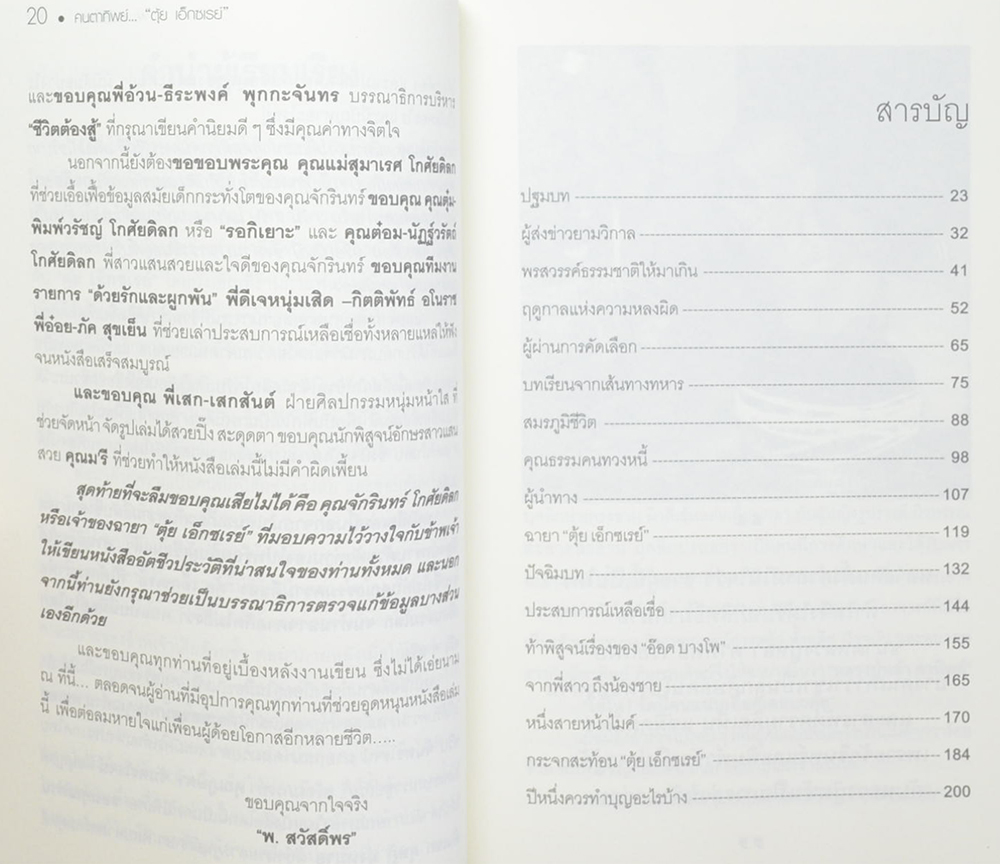 20 • คนตาทิพย์... “ตุ้ย เอ็กซเรย์”
และขอบคุณพี่อ้วน-ธีระพงค์ พุกกะจันทร บรรณาธิการบริหาร
“ชีวิตต้องสู้” ที่กรุณาเขียนคำนิยมดี ๆ ซึ่งมีคุณค่าทางจิตใจ
นอกจากนี้ยังต้องขอขอบพระคุณ คุณแม่สุมาเรศ โกศัยดิลก
ที่ช่วยเอื้อเฟื้อข้อมูลสมัยเด็กกระทั่งโตของคุณจักรินทร์ ขอบคุณ คุณตุ่ม-
พิมพ์วรัชญ์ โกศัยดิลก หรือ “รอกิเยาะ” และ คุณต๋อม-นัฏฐ์วรัตถ์
โกศัยดิลก พี่สาวแสนสวยและใจดีของคุณจักรินทร์ ขอบคุณทีมงาน
รายการ “ด้วยรักและผูกพัน” พี่ดีเจหนุ่มเสิด –กิตติพัทธ์ อโนราช
พี่อ๋อย-ภัค สุขเย็น ที่ช่วยเล่าประสบการณ์เหลือเชื่อทั้งหลายแหล่ให้ฟัง
จนหนังสือเสร็จสมบูรณ์
และขอบคุณ พี่เสก-เสกสันต์ ฝ่ายศิลปกรรมหนุ่มหน้าใส ที่
ช่วยจัดหน้า จัดรูปเล่มได้สวยปิ๊ง สะดุดตา ขอบคุณนักพิสูจน์อักษรสาวแสน
สวย คุณมรี ที่ช่วยทำให้หนังสือเล่มนี้ไม่มีคำผิดเพี้ยน
สุดท้ายที่จะลืมขอบคุณเสียไม่ได้ คือ คุณจักรินทร์ โกศัยดิลก
หรือเจ้าของฉายา “ตุ้ย เอ็กซเรย์” ที่มอบความไว้วางใจกับข้าพเจ้า
ให้เขียนหนังสืออัตชีวประวัติที่น่าสนใจของท่านทั้งหมด และนอก
จากนี้ท่านยังกรุณาช่วยเป็นบรรณาธิการตรวจแก้ข้อมูลบางส่วน
เองอีกด้วย
และขอบคุณทุกท่านที่อยู่เบื้องหลังงานเขียน ซึ่งไม่ได้เอ่ยนาม
ณ ที่นี้... ตลอดจนผู้อ่านที่มีอุปการคุณทุกท่านที่ช่วยอุดหนุนหนังสือเล่ม
นี้ เพื่อต่อลมหายใจแก่เพื่อนผู้ด้อยโอกาสอีกหลายชีวิต.....
ขอบคุณจากใจจริง
“พ. สวัสดิ์พร”
สารบัญ
ปฐมบท 23
ผู้ส่งข่าวยามวิกาล 32
พรสวรรค์ธรรมชาติให้มาเกิน 41
ฤดูกาลแห่งความหลงผิด 52
ผู้ผ่านการคัดเลือก 65
บทเรียนจากเส้นทางทหาร 75
สมรภูมิชีวิต 88
คุณธรรมคนทวงหนี้ 98
ผู้นำทาง 107
ฉายา “ตุ้ย เอ็กซเรย์” 119
ปัจฉิมบท 132
ประสบการณ์เหลือเชื่อ 144
ท้าพิสูจน์เรื่องของ “อ๊อด บางโพ” 155
จากพี่สาว ถึงน้องชาย 165
หนึ่งสายหน้าไมค์ 170
กระจกสะท้อน “ตุ้ย เอ็กซเรย์” 184
ปีหนึ่งควรทำบุญอะไรบ้าง 200